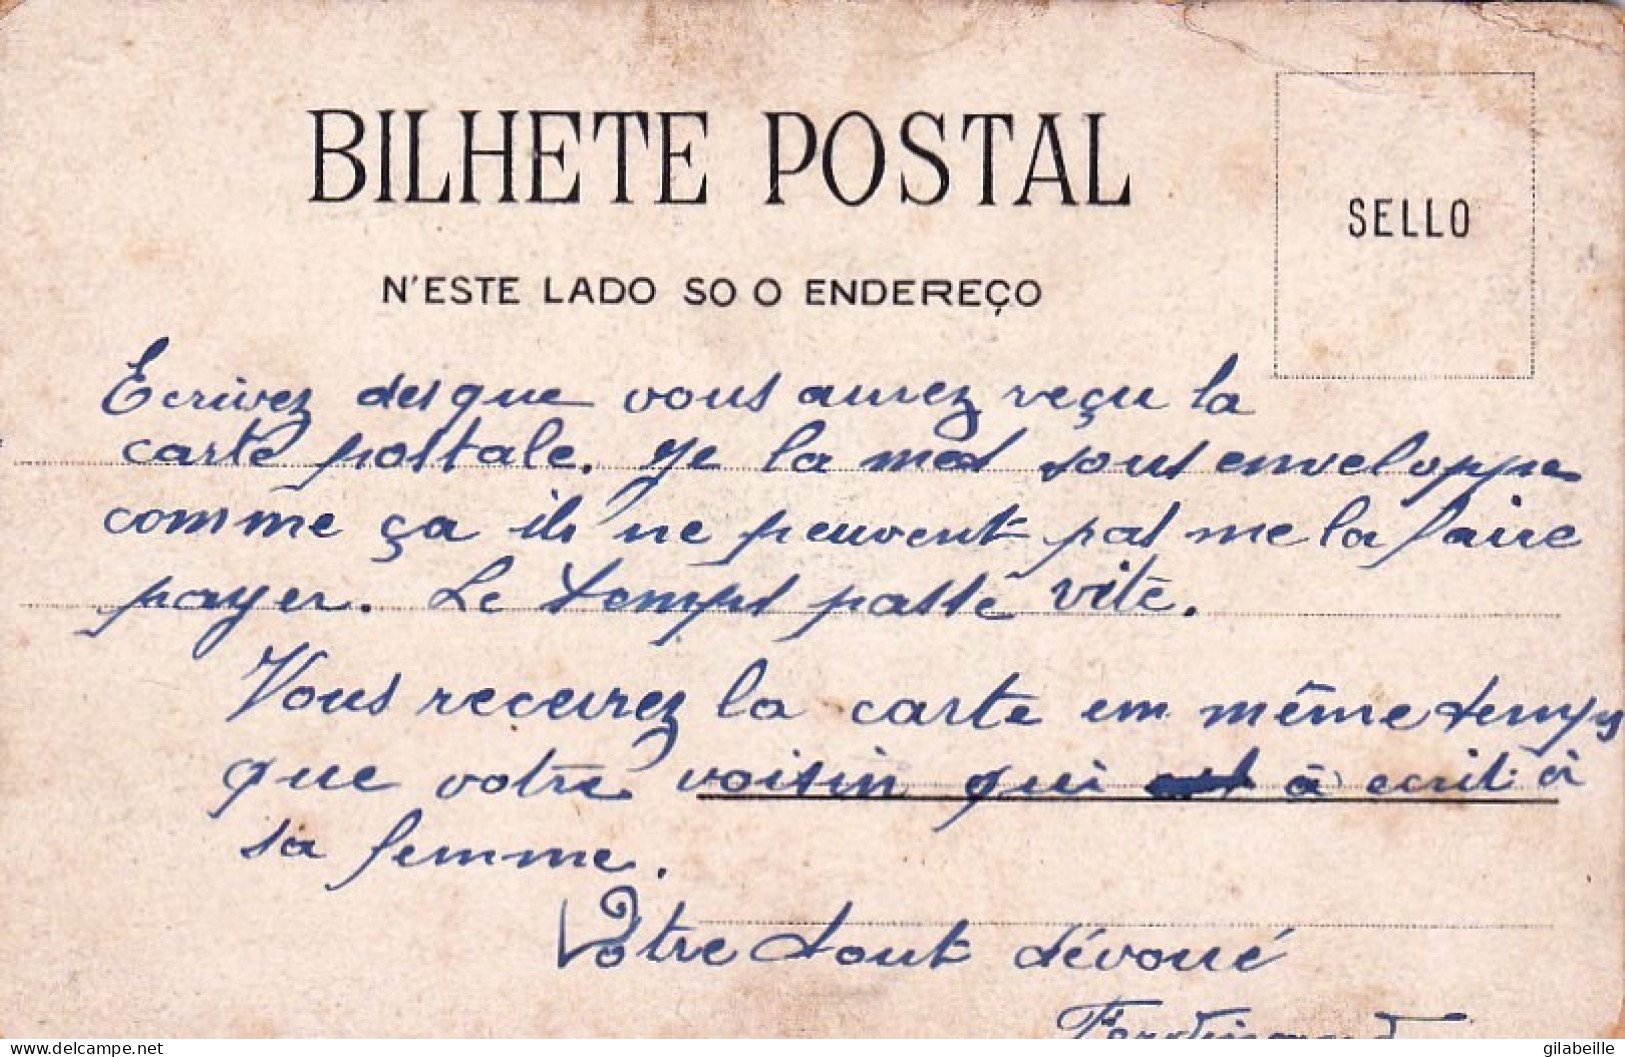 BILHETE POSTAL
SELLO
N'ESTE LADO SO O ENDEREÇO
Ecrivez des que vous aurez reçu la
carte postale. Je la mes sous enveloppe
comme ça ils ne peuvent pas me la faire
payer. Le temps passe vite.
Vous recevrez la carte em même temps
que votre voisin qui à ecrit à
sa femme.
Votre tout dévoué
Ferdinand
delcampe.net
gilabeille